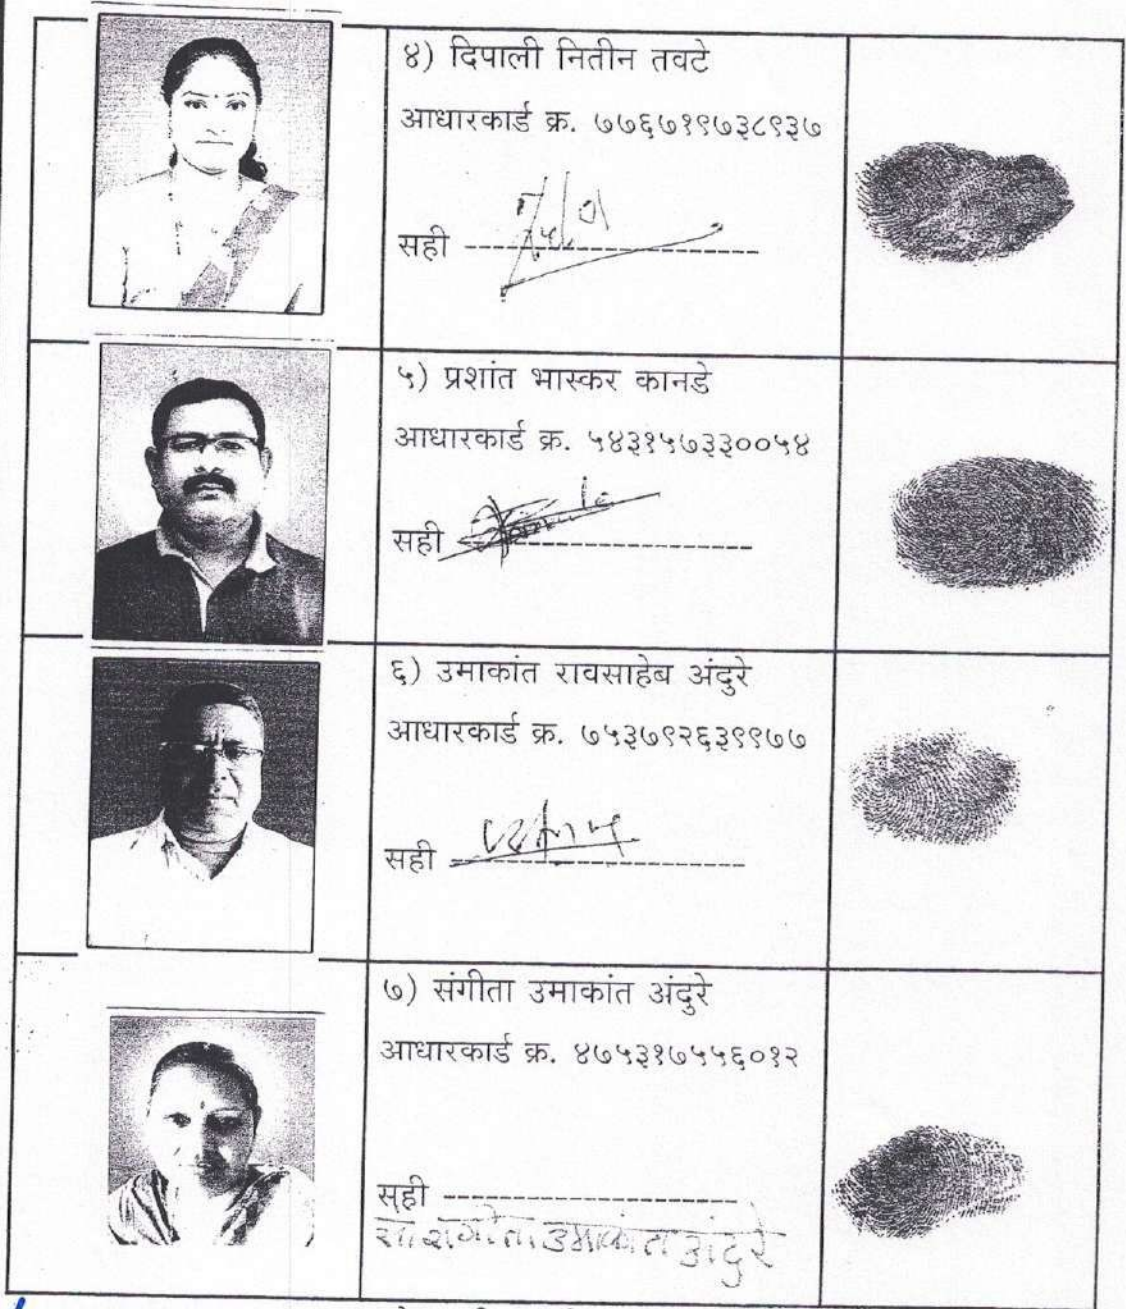 ४) दिपाली नितीन तवटे
आधारकार्ड क्र. ७७६७१९७३८९३७
सही
५) प्रशांत भास्कर कानडे
आधारकार्ड क्र. ५४३१५७३३००५४
सही
६) उमाकांत रावसाहेब अंदुरे
आधारकार्ड क्र. ७५३७९२६३९९७७
सही
७) संगीता उमाकांत अंदुरे
आधारकार्ड क्र. ४७५३१७५५६०१२
सही
संगीता उमाकांत अंदुरे